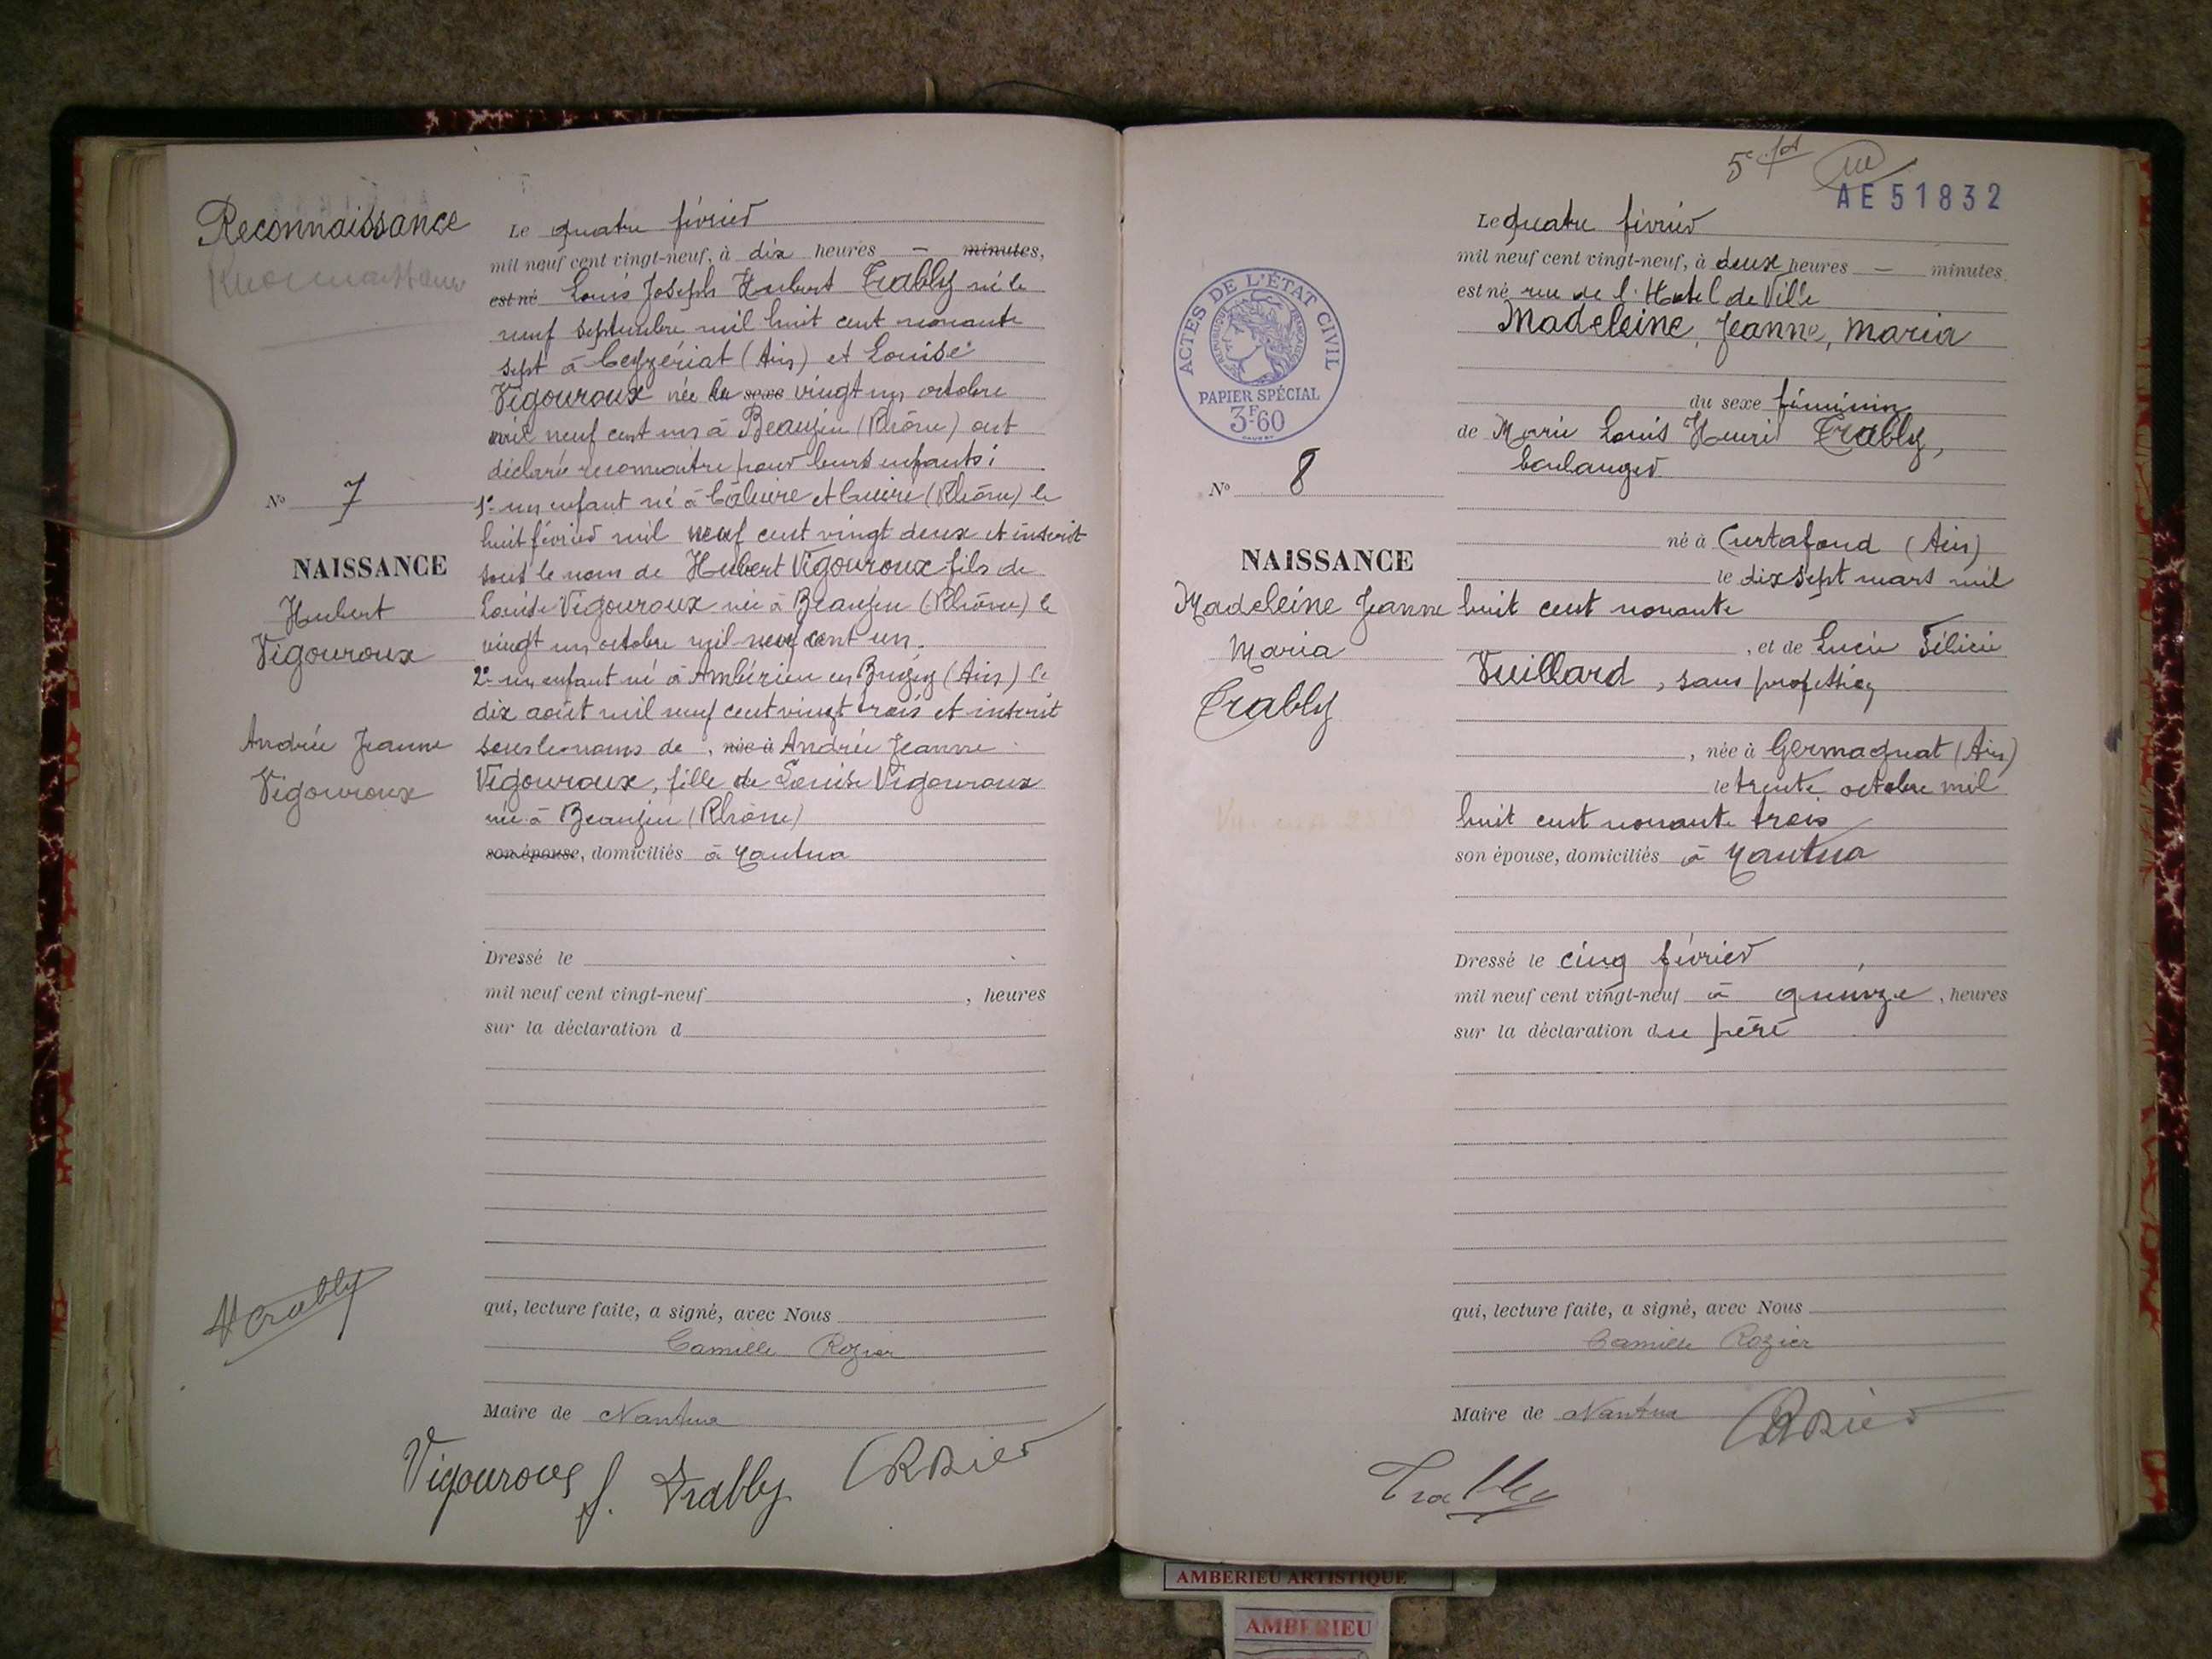 Reconnaissance
Reconnaissance
Le quatre février
mil neuf cent vingt-neuf, à dix heures — minutes,
est né Louis Joseph Hubert Trably né le
neuf septembre mil huit cent nonante
sept à Ceyzériat (Ain) et Louise
Vigouroux née le sexe vingt un octobre
mil neuf cent un à Beaujeu (Rhône) ont
déclaré reconnaître pour leurs enfants :
1º un enfant né à Caluire et Cuire (Rhône) le
huit février mil neuf cent vingt deux et inscrit
sous le nom de Hubert Vigouroux fils de
Louise Vigouroux née à Beaujeu (Rhône) le
vingt un octobre mil neuf cent un.
2º un enfant né à Ambérieu en Bugey (Ain) le
dix août mil neuf cent vingt trois et inscrit
sous le noms de , née à Andrée Jeanne
Vigouroux, fille de Louise Vigouroux
née à Beaujeu (Rhône)
son épouse, domiciliés à Nantua
Nº 7
NAISSANCE
Hubert
Vigouroux
Andrée Jeanne
Vigouroux
Dressé le
mil neuf cent vingt-neuf , heures
sur la déclaration d
HTrably
qui, lecture faite, a signé, avec Nous
Camille Rozier
Maire de Nantua
Vigouroux J. Trably CRozier
5e
AE 51832
ACTES DE L'ÉTAT CIVIL
RÉPUBLIQUE FRANÇAISE
PAPIER SPÉCIAL
3F60
Nº 8
NAISSANCE
Madeleine Jeanne
Maria
Trably
Le quatre février
mil neuf cent vingt-neuf, à deux heures — minutes.
est né rue de l'Hotel de Ville
Madeleine, Jeanne, Maria
du sexe féminin
de Marie Louis Henri Trably,
boulanger
né à Curtafond (Ain)
le dix sept mars mil
huit cent nonante
, et de Lucie Félicie
Vuillard, sans profession
, née à Germagnat (Ain)
le trente octobre mil
huit cent nonante trois
son épouse, domiciliés à Nantua
Dressé le cinq février ,
mil neuf cent vingt-neuf à quinze , heures
sur la déclaration du père
qui, lecture faite, a signé, avec Nous
Camille Rozier
Maire de Nantua CRozier
Trably
AMBERIEU ARTISTIQUE
AMBERIEU